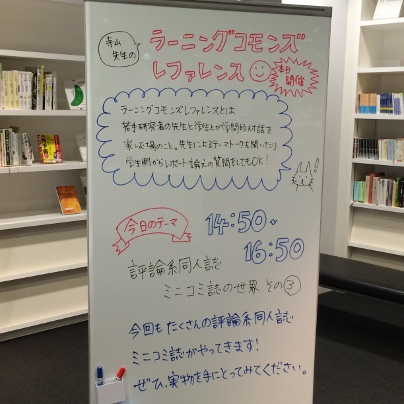 寺山先生の
ラーニングコモンズ
レファレンス
本日開催
ラーニングコモンズレファレンスとは
若手研究者の先生と学生とが学問的対話を
楽しむ場のこと。先生によるテーマトークを聞いたり
学生側からレポート・論文の質問をしてもOK!
今日のテーマ
14:50~
16:50
評論系同人誌
ミニコミ誌の世界 その③
今回もたくさんの評論系同人誌
ミニコミ誌がやってきます!
ぜひ、実物を手にとってみてください。